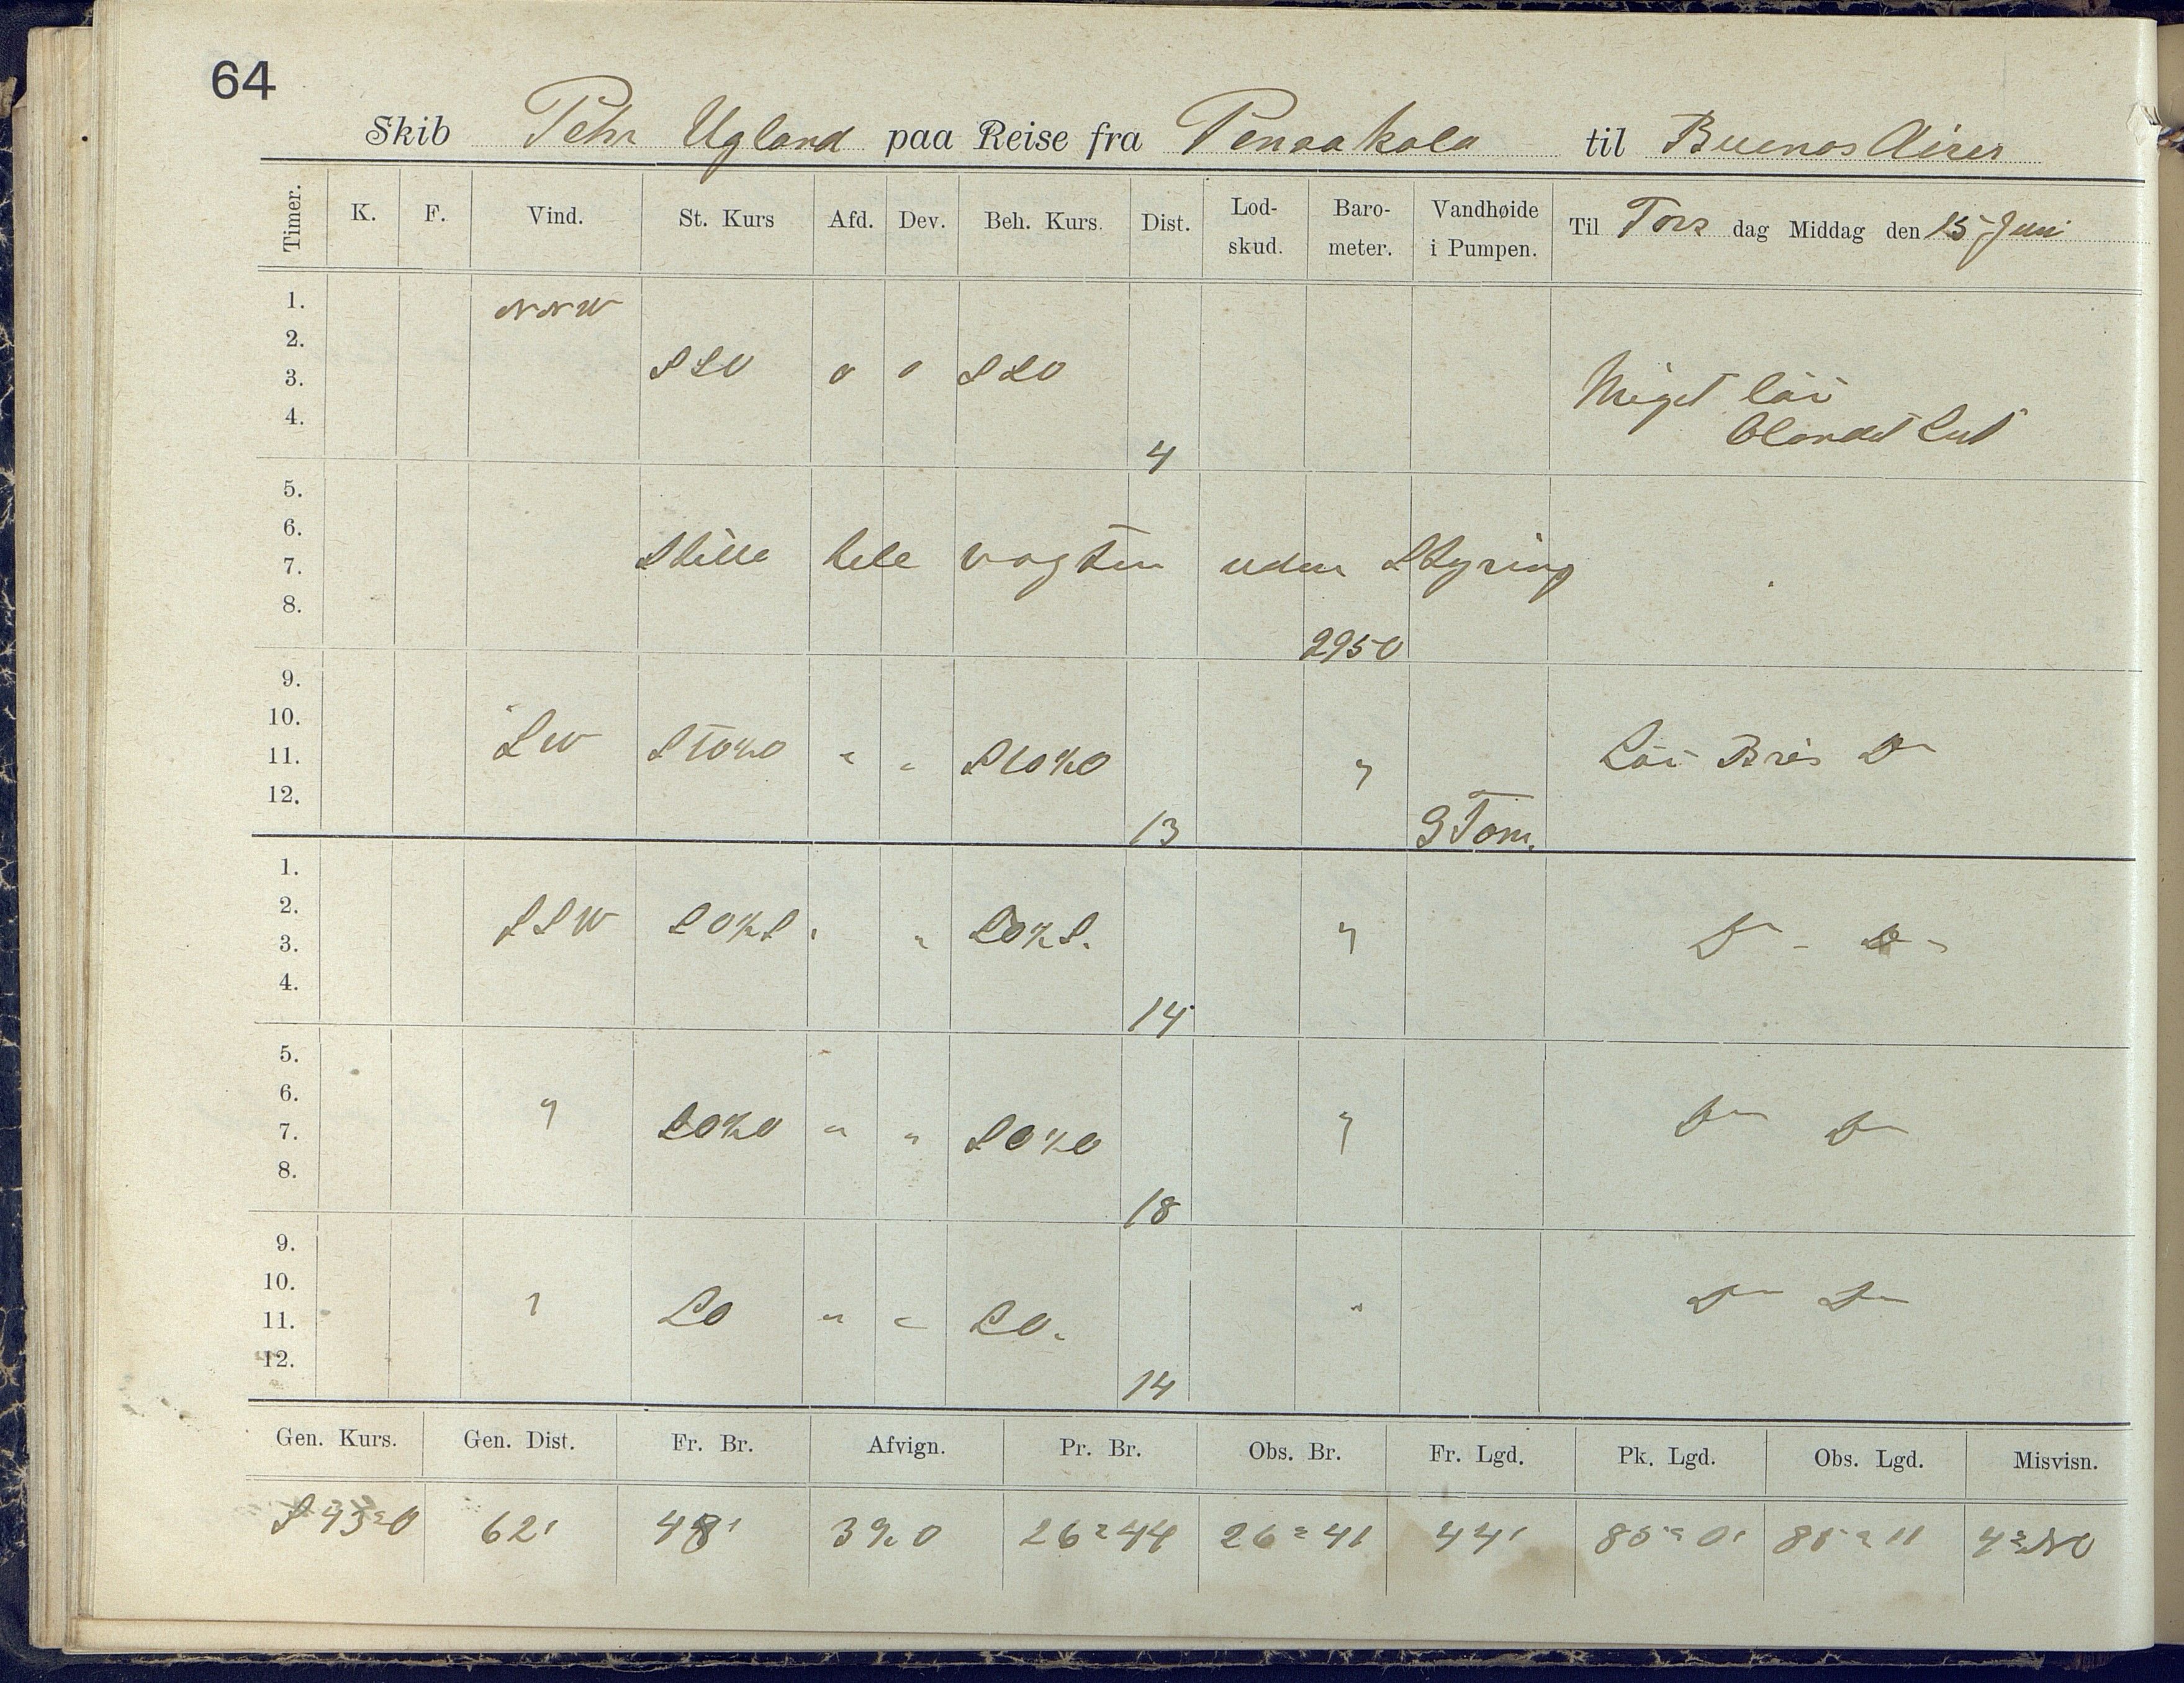 64
Skib Pehr Ugland paa Reise fra Pensakola til Buenos Aires
Timer. K. F. Vind. St. Kurs Afd. Dev. Beh. Kurs. Dist. Lod-skud. Baro-meter. Vandhøide i Pumpen. Til Tors dag Middag den 15 Juni
1. NNW
2.
3. SSO 0 0 SSO Meget löi
4. 4 blandet Luft
5.
6.
7. Stille hele vagten uden Styring
8. 2950
9.
10.
11. SW StO½O " " StO½O " Löi Bris Do
12. 13 9 Tom.
1.
2.
3. SSW SOtS " " SOtS. " Do - Do -
4. 14
5.
6.
7. " SOtO " " SOtO " Do Do
8. 18
9.
10.
11. " SO " " SO. " Do Do
12. 14
Gen. Kurs. Gen. Dist. Fr. Br. Afvign. Pr. Br. Obs. Br. Fr. Lgd. Pk. Lgd. Obs. Lgd. Misvisn.
62' 48' 26°44 26°41 44' 85°0' 85°11 4°NO